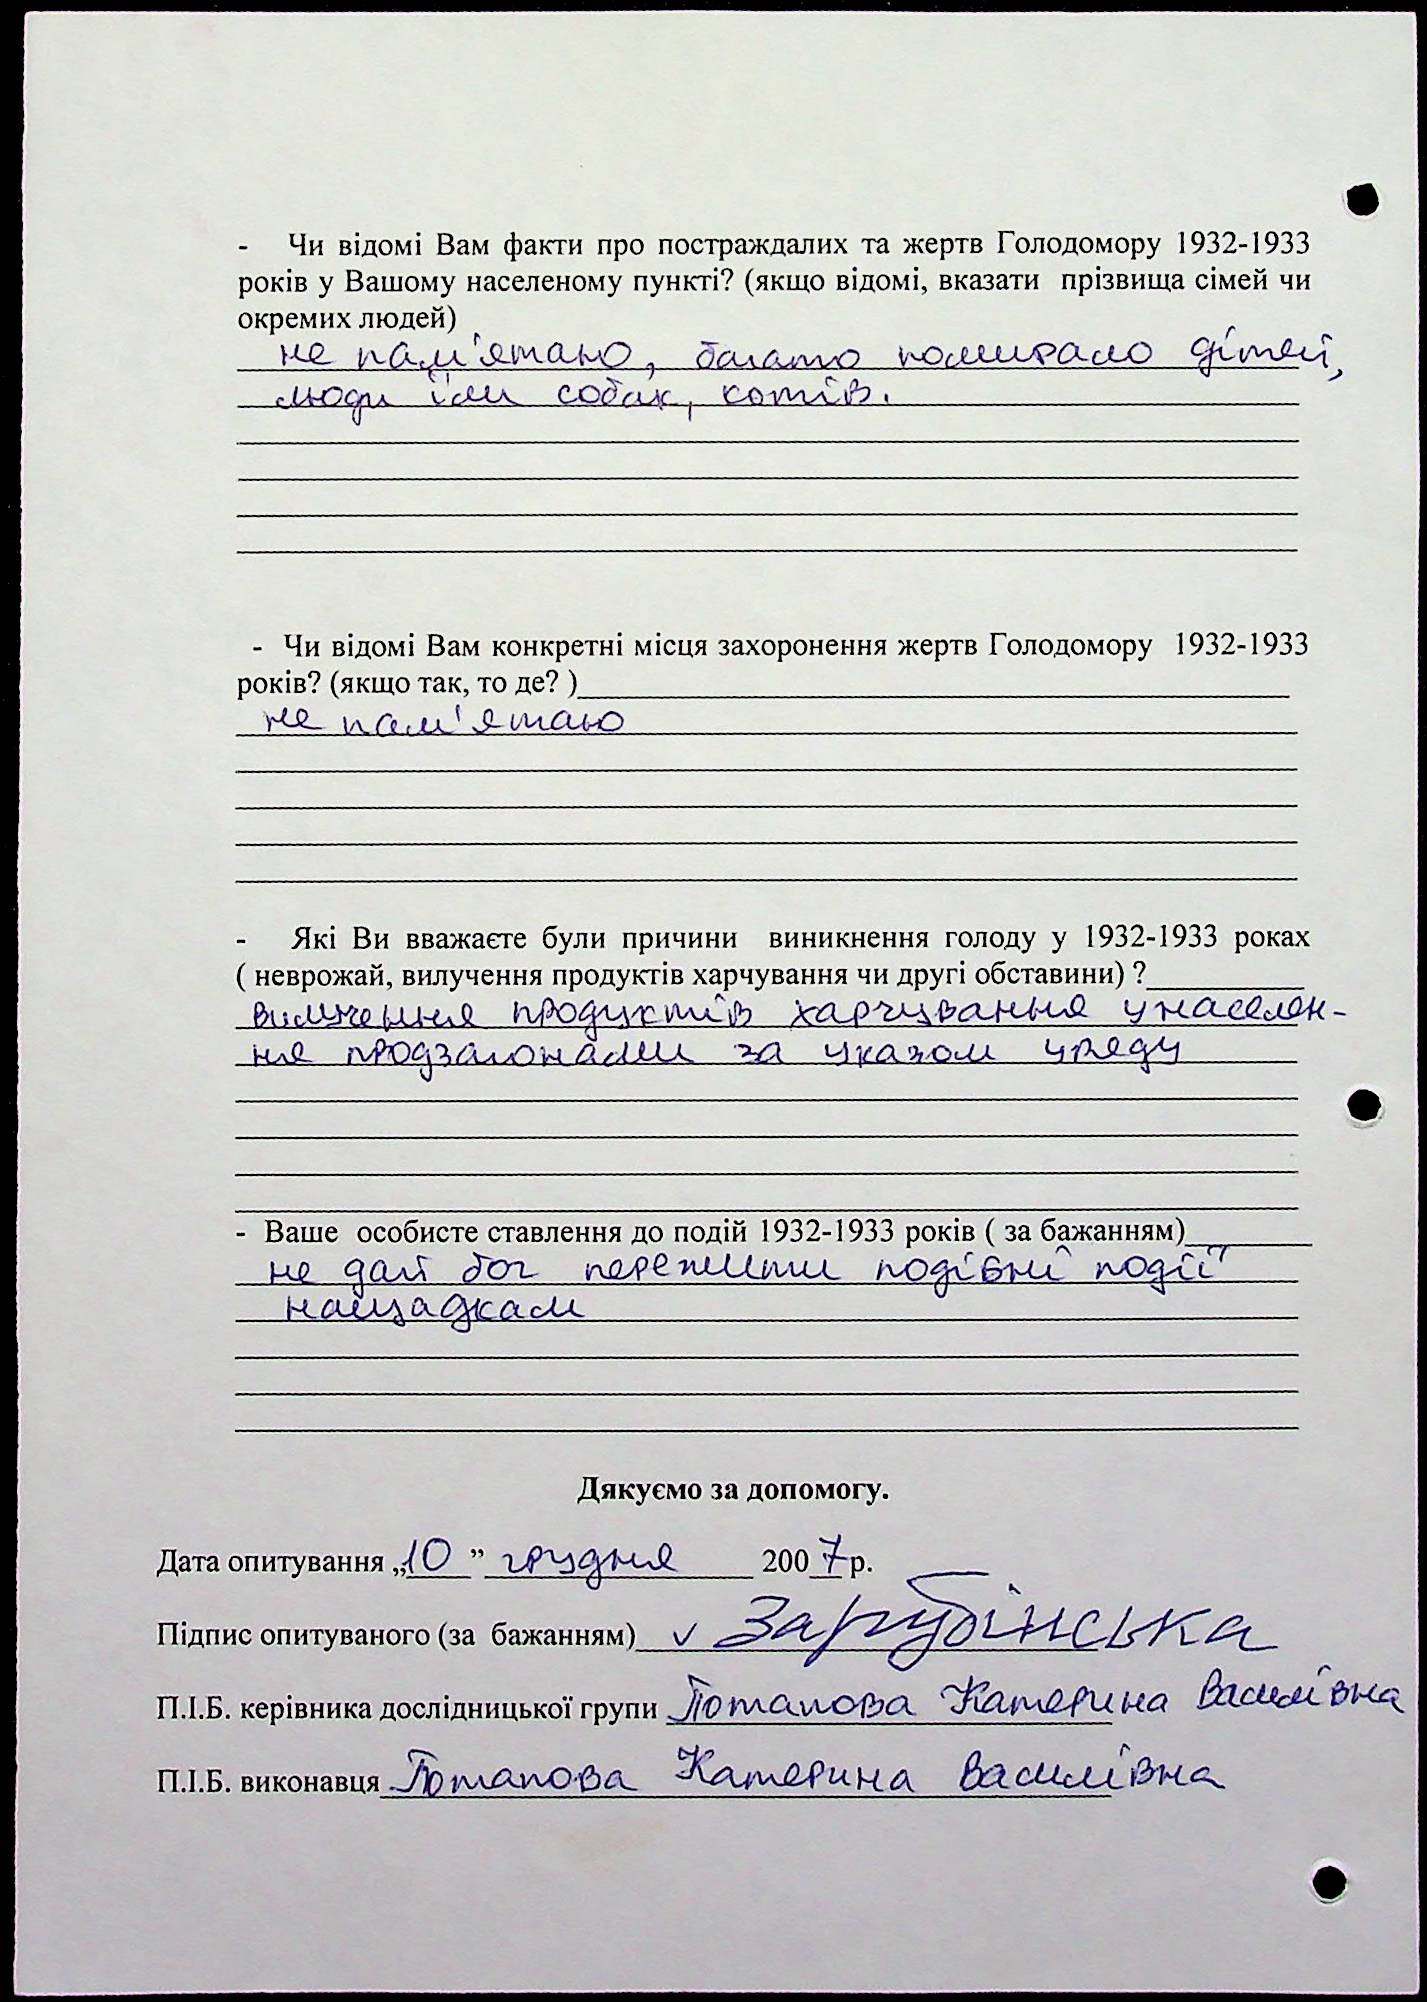 - Чи відомі Вам факти про постраждалих та жертв Голодомору 1932-1933
років у Вашому населеному пункті? (якщо відомі, вказати прізвища сімей чи
окремих людей)
не пам'ятаю, багато помирало дітей,
люди їли собак, котів.
- Чи відомі Вам конкретні місця захоронення жертв Голодомору 1932-1933
років? (якщо так, то де? )
не пам'ятаю
- Які Ви вважаєте були причини виникнення голоду у 1932-1933 роках
( неврожай, вилучення продуктів харчування чи другі обставини) ?
вилучення продуктів харчування у населен-
ня продзагонами за указом уряду
- Ваше особисте ставлення до подій 1932-1933 років ( за бажанням)
не дай бог пережити подібні події
нащадкам
Дякуємо за допомогу.
Дата опитування „10” грудня 2007 р.
Підпис опитуваного (за бажанням) v Зарубінська
П.І.Б. керівника дослідницької групи Потапова Катерина Василівна
П.І.Б. виконавця Потапова Катерина Василівна